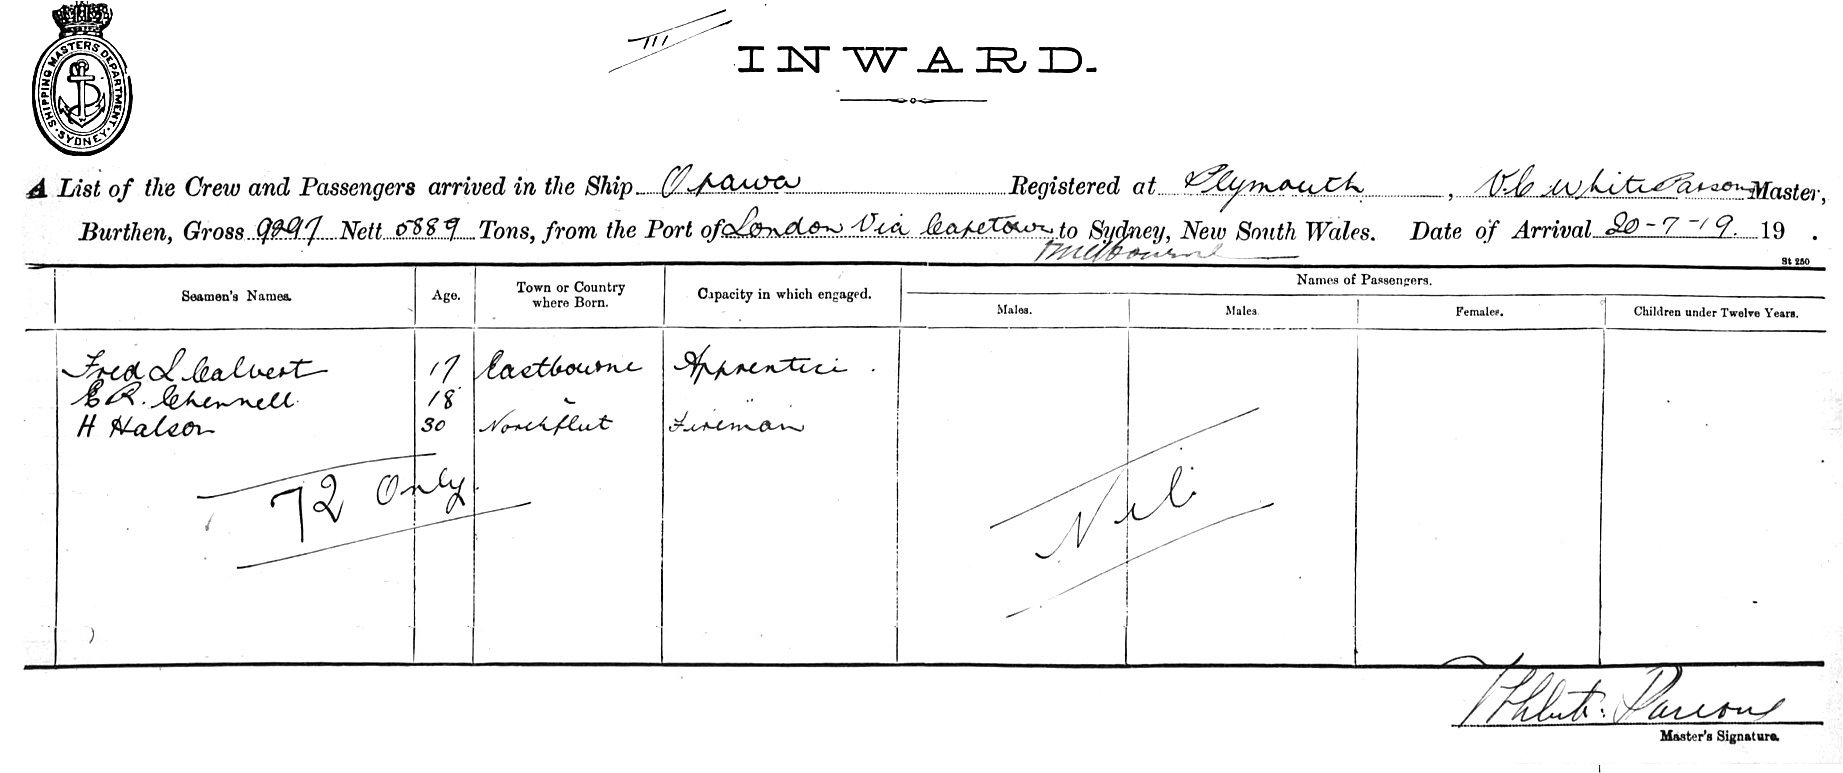 III
INWARD.
SHIPPING MASTERS DEPARTMENT
SYDNEY
A List of the Crew and Passengers arrived in the Ship Opawa Registered at Plymouth, V.C. White Parsons Master,
Burthen, Gross 9297 Nett 5889 Tons, from the Port of London Via Capetown to Sydney, New South Wales. Date of Arrival 20-7-19. 19 .
Melbourne
St 250
Seamen's Names. Age. Town or Country where Born. Capacity in which engaged. Names of Passengers.
Males. Males Females. Children under Twelve Years.
Fred L Calvert 17 Eastbourne Apprentice .
E R. Chennell 18 "
H Halson 30 Northfleet Fireman
72 Only.
Nil
White Parsons
Master's Signature.